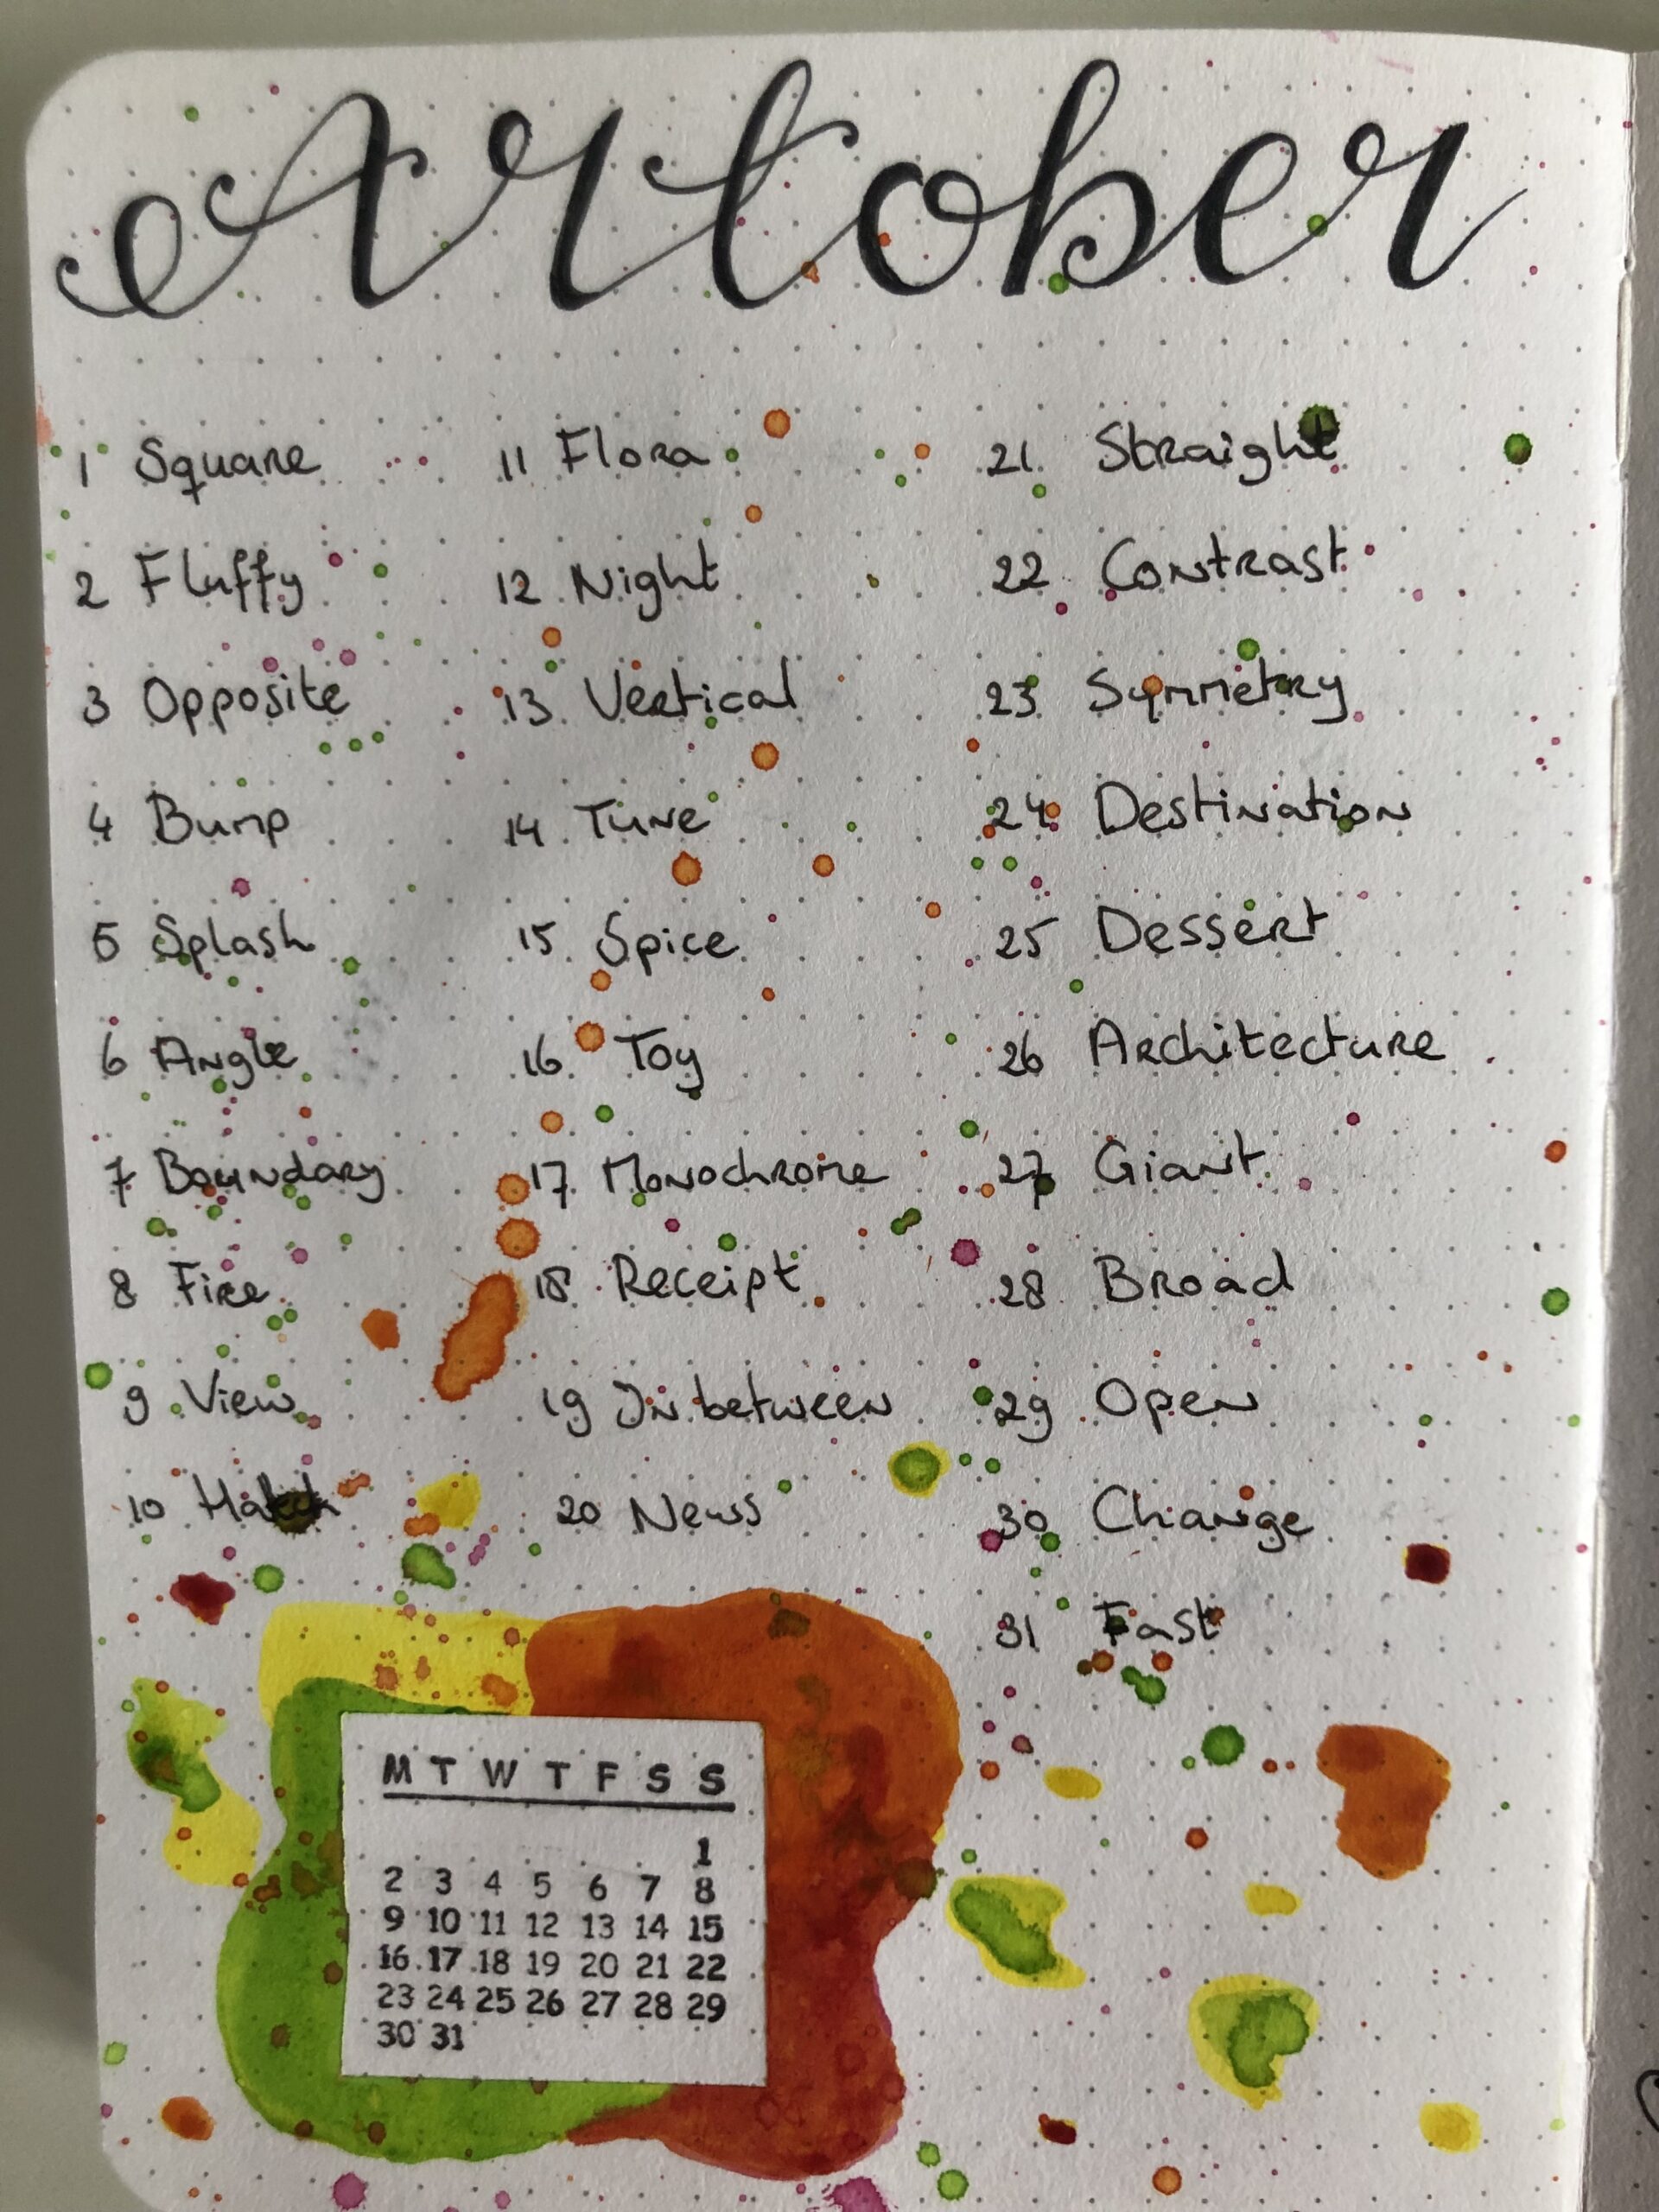 Artober
1 Square
2 Fluffy
3 Opposite
4 Bump
5 Splash
6 Angle
7 Boundary
8 Fire
9 View
10 Hatch
11 Flora
12 Night
13 Vertical
14 Tune
15 Spice
16 Toy
17 Monochrome
18 Receipt
19 In between
20 News
21 Straight
22 Contrast
23 Symmetry
24 Destination
25 Dessert
26 Architecture
27 Giant
28 Broad
29 Open
30 Change
31 Fast
M T W T F S S
1
2 3 4 5 6 7 8
9 10 11 12 13 14 15
16 17 18 19 20 21 22
23 24 25 26 27 28 29
30 31